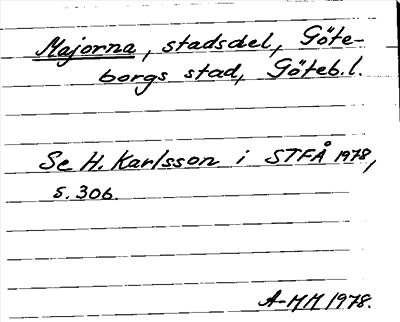 Majorna, stadsdel, Göte-
borgs stad, Göteb.l.
Se H. Karlsson i STFÅ 1978,
s. 306.
A-MM 1978.